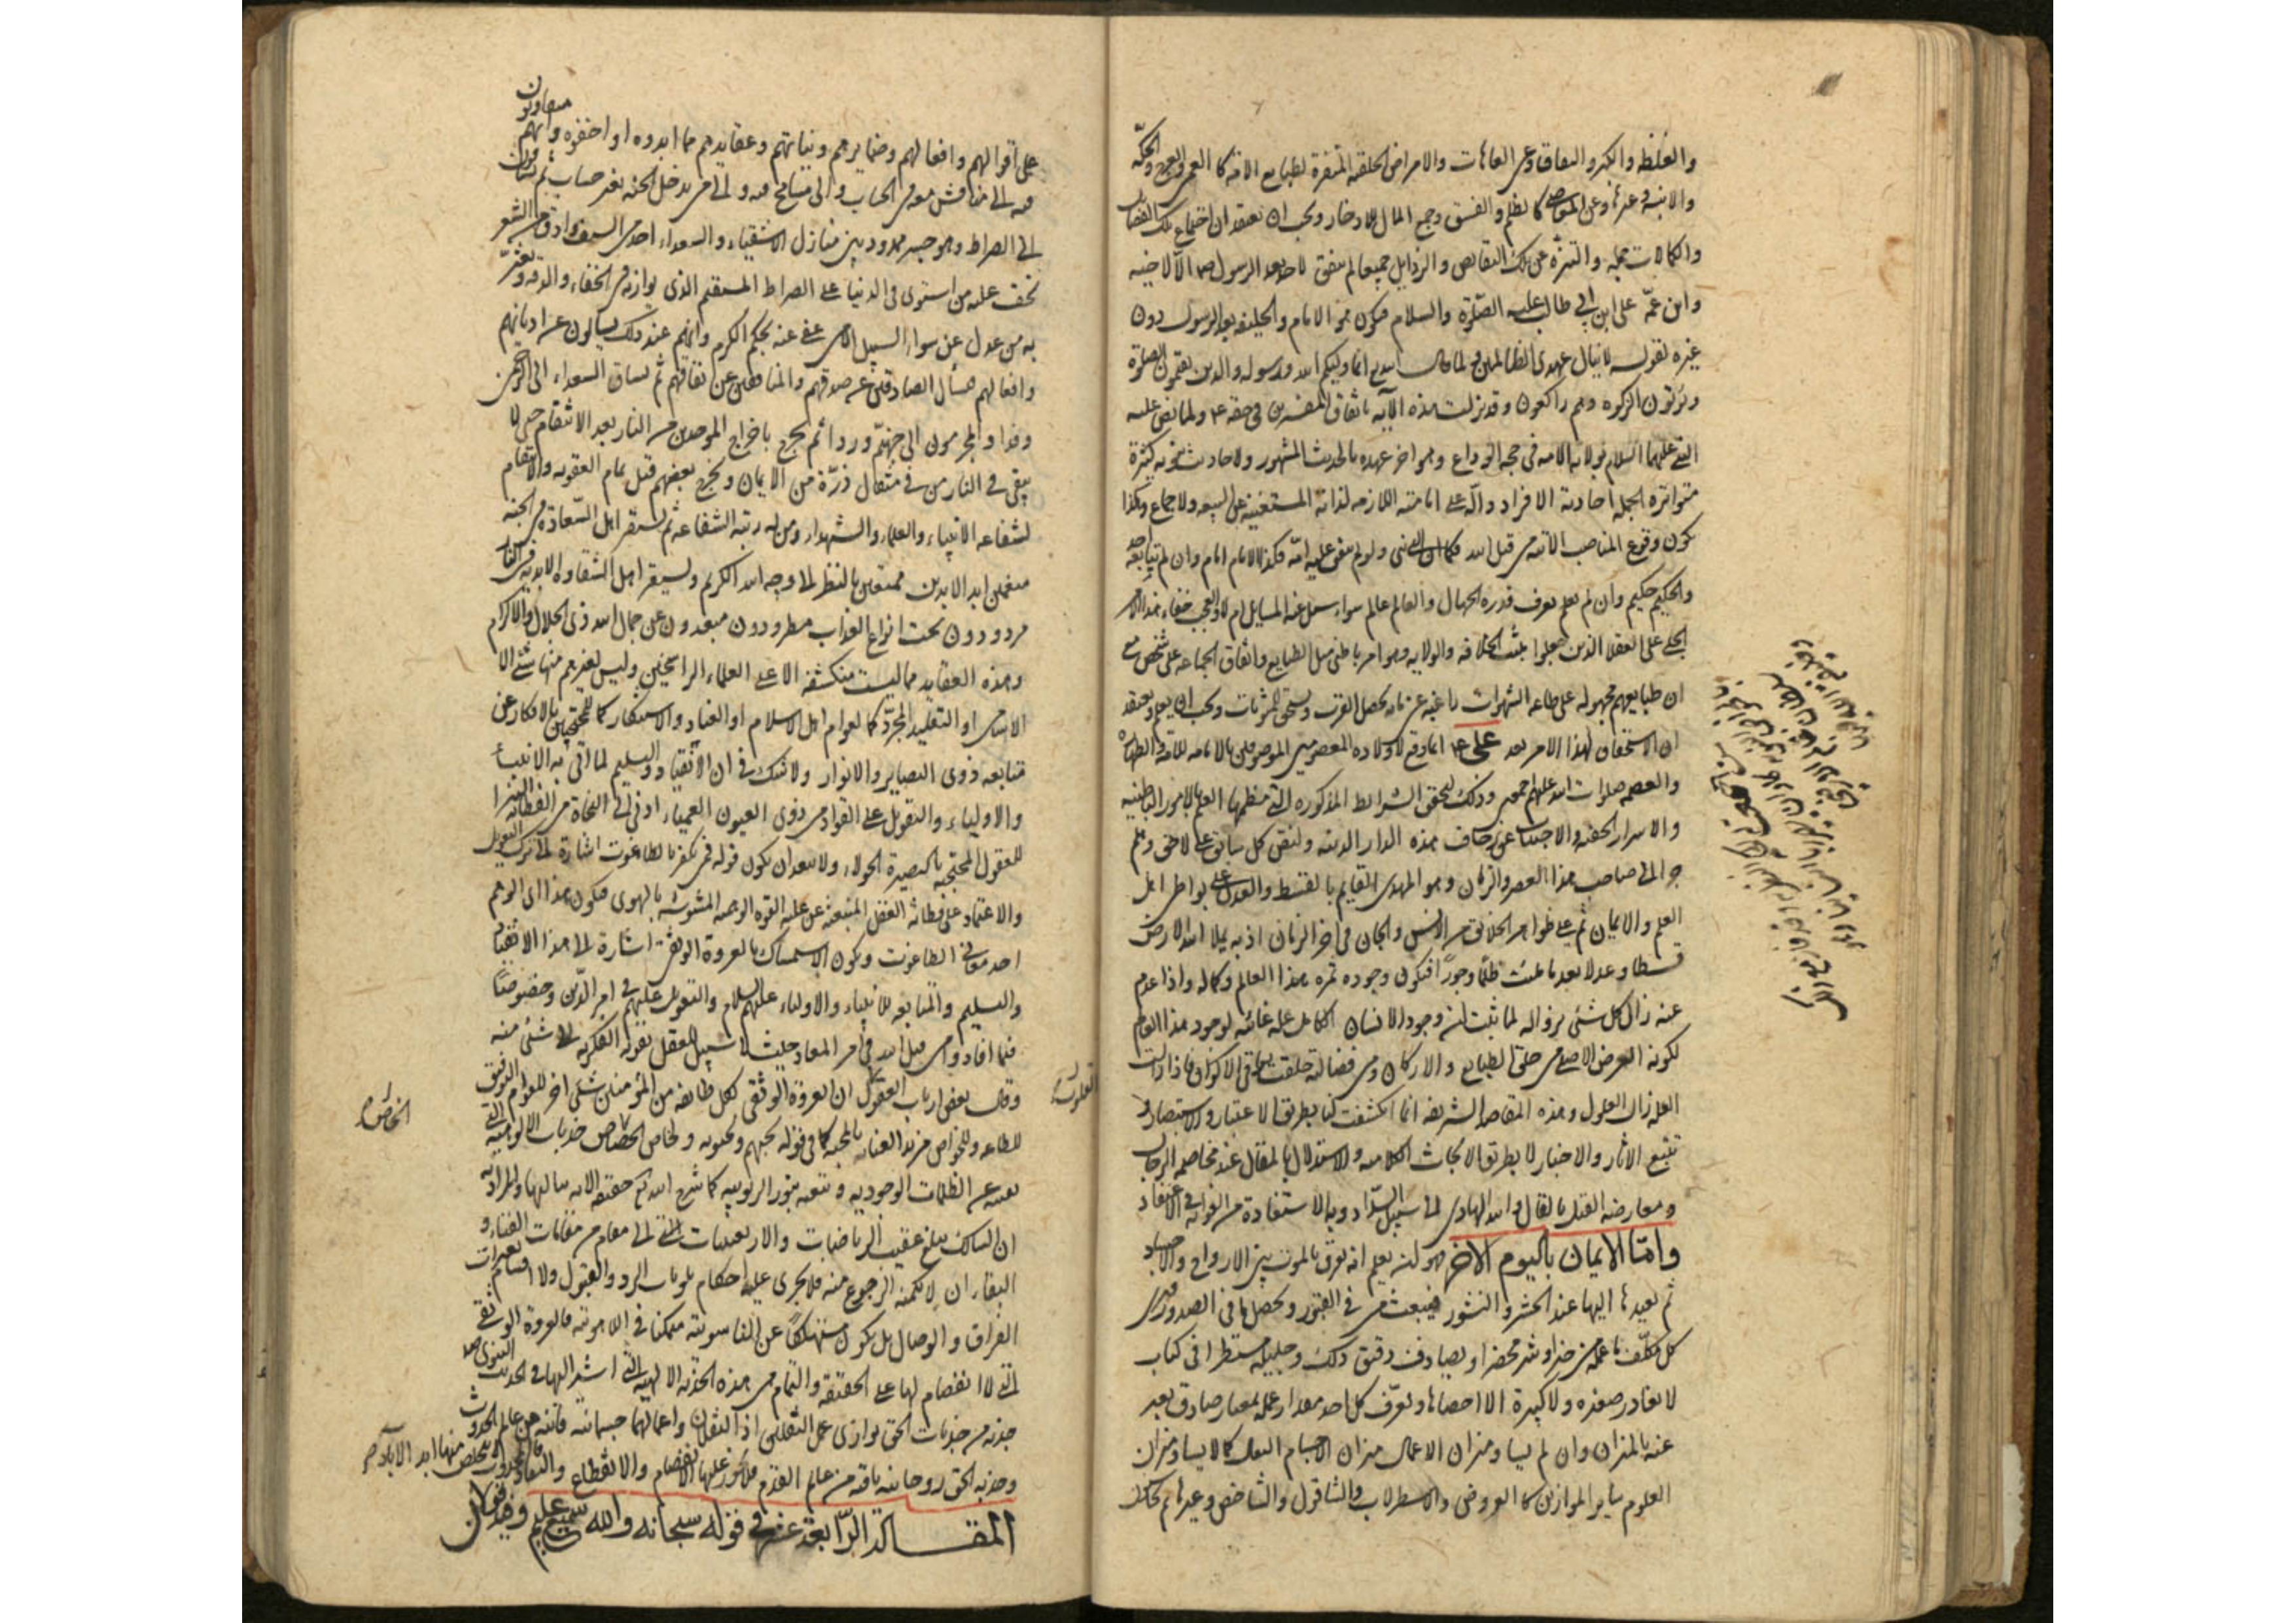 والغلظة والكبر والنفاق وعن العاهات والامراض الخلقية المنفرة لطبايع الامة كالعمى والعرج والحكة
والابنة وغيرها وعن المعاصي كالظلم والفسق وجمع المال للادخار ويجب ان يعتقد ان اجتماع تلك الفضايل
والكمالات جملة والتنزه عن تلك النقايص والرذايل جميعا لم يتفق لاحد بعد الرسول ص الا لاخيه
وابن عمه علي ابن ابي طالب عليه الصلوة والسلام فيكون هو الامام والخليفة بعد الرسول دون
غيره لقوله لا ينال عهدي الظالمين ولما قال انما وليكم الله ورسوله والذين يقيمون الصلوة
ويؤتون الزكوة وهم راكعون وقد نزلت هذه الآية باتفاق المفسرين في حقه ع ولما نص عليه
النبي عليهما السلام بولاية الامة في حجة الوداع وهو اخر عهده بالحديث المشهور ولاحاديث كثيرة
متواترة الجملة احادية الافراد دالة على امامته اللازمة لذاته المستغنية عن البيعة والاجماع وهكذا
يكون وقوع المناصب الآتية من قبل الله فكما ان النبي نبي ولو لم يتفق عليه امة فكذا الامام امام وان لم يتابعه احد
والحكيم حكيم وان لم يعلم يعرف قدره الجهال والعالم عالم سواء سئل عنه المسايل ام لا والعجب خفاء هذا الامر
الجلي على العقلاء الذين جعلوا مبنى الخلافة والولاية وهو امر باطني ميل الطبايع واتفاق الجماعة على شخص مع
ان طبايعهم مجبولة على طاعة الشهوات راغبة عما به يحصل القرب ويستحق المثوبات ويجب ان يعلم ويعتقد
ان الاستحقاق لهذا الامر بعد علي ع انما وقع لاولاده المعصومين الموصوفين بالامامة للامة والطهارة
والعصمة صلوات الله عليهم اجمعين وذلك لتحقق الشرايط المذكورة التي معظمها العلم بالامور الباطنية
والاسرار الخفية والاجتناب عن زخارف هذه الدار الدنية ولنص كل سابق على لاحق وهلم
جرا الى صاحب هذا العصر والزمان وهو المهدي القايم بالقسط والعدل على بواطن اهل
العلم والايمان ثم على ظواهر الخلايق من الانس والجان في اخر الزمان اذ به يملا الله الارض
قسطا وعدلا بعد ما ملئت ظلما وجورا فيكون وجوده ثمرة هذا العالم وكماله واذا عدم
عنه زال كل شئ بزواله لما ثبت ان وجود الانسان الكامل علة غائية لوجود هذا العالم
لكونه الغرض الاصلي من خلق الطبايع والاركان ومن فضالته خلقت باقي الاكوان فاذا زالت
العلة زال المعلول وهذه المقاصد الشريفة انما انكشفت لنا بطريق الاعتبار والاستبصار و
تتبع الاثار والاخبار لا بطريق الابحاث الكلامية والاستدلال بالمقال عند مخاصمة الرجال
ومعارضة القيل بالقال والله الهادي الى سبيل السداد وبه الاستفادة من الغواية في الاعتقاد
واما الايمان باليوم الاخر فهو ان يعلم انه يفرق بالموت بين الارواح والاجساد
ثم يعيدها اليها عند الحشر والنشور فيبعث من في القبور ويحصل ما في الصدور فيرى
كل مكلف ما عمله من خير او شر محضرا ويصادف دقيق ذلك وجليله مستطرا في كتاب
لا يغادر صغيرة ولا كبيرة الا احصاها ويعرف كل احد مقدار عمله بمعيار صادق يعبر
عنه بالميزان وان لم يساو ميزان الاعمال ميزان الاجسام الثقال كما لا يساوي ميزان
العلوم ساير الموازين كالعروض والاسطرلاب والشاقول والشاخص وغيرها ثم يحاسبون
على اقوالهم وافعالهم وضمايرهم ونياتهم وعقايدهم مما ابدوه او اخفوه وانهم متفاوتون
فيه الى مناقش معه في الحساب والى مسامح فيه والى من يدخل الجنة بغير حساب ثم يساقون
الى الصراط وهو جسر ممدود بين منازل الاشقياء والسعداء احد من السيف وادق من الشعر
يخف عليه من استوى في الدنيا على الصراط المستقيم الذي يوازيه في الخفاء والدقة ويعثر
به من عدل عن سواء السبيل الا من عفي عنه بحكم الكرم وانهم عند ذلك يسألون عن اديانهم
وافعالهم فيسأل الصادقين عن صدقهم والمنافقين عن نفاقهم ثم يساق السعداء الى الرحمن
وفدا والمجرمون الى جهنم وردا ثم يخرج باخراج الموحدين من النار بعد الانتقام حتى لا
يبقى في النار من في مثقال ذرة من الايمان ويخرج بعضهم قبل تمام العقوبة والانتقام
لشفاعة الانبياء والعلماء والشهداء ومن له رتبة الشفاعة ثم يستقر اهل السعادة في الجنة
منعمين ابد الابدين ممتعين بالنظر الى وجه الله الكريم ويستقر اهل الشقاوة الابدية في النار
مردودون تحت انواع العذاب مطرودون مبعدون عن جمال الله ذي الجلال والاكرام
وهذه العقايد مما ليست منكشفة الا على العلماء الراسخين وليس لغيرهم منها شئ الا
الاسامي او التقليد المجرد كما لعوام اهل الاسلام او العناد والاستكبار كما للمحتجبين بالافكار عن
متابعة ذوي البصاير والانوار ولا شك في ان الانقياد والتسليم لما اتى به الانبياء
والاولياء والتعويل على القواد من ذوي العيون العمياء ادنى الى النجاة من الفطانة البتراء
للعقول المحتجبة بالبصيرة الحولاء ولا يبعد ان يكون قوله فمن يكفر بالطاغوت اشارة الى ترك التعويل
والاعتماد على فطانة العقل المنبعثة عن غلبة القوة الوهمية المشوشة بالهوى فيكون هذا اي الوهم
احد معاني الطاغوت ويكون الاستمساك بالعروة الوثقى اشارة الى هذا الانقياد
والتسليم والمتابعة للانبياء والاولياء عليهم السلام والتعويل عليهم في امر الدين وخصوصا
فيما افادوا من قبل الله في امر المعاد حيث لا سبيل للعقل بقوته الفكرية الى شئ منه
وقال بعض ارباب العقول ان العروة الوثقى لكل طايفة من المؤمنين شئ اخر للعوام التوفيق
للطاعة وللخواص مزيد العناية بالمحبة كما في قوله يحبهم ويحبونه ولخاص الخاص جذبات الالوهية التي
تفنيه عن الظلمات الوجودية وتبقيه بنور الربوبية كما شرح الله حقيقة الاية
ان السالك يبلغ عقيب الرياضات والاربعينيات الى مقام من مقامات الفناء و
البقاء ان لا يمكنه الرجوع منه فلا يجري عليه احكام تلوينات الرد والقبول ولا اقسام تغيرات
الفراق والوصال بل يكون مستهلكا عن الناسوتية متمكنا في اللاهوتية فالعروة الوثقى
التي لا انفصام لها على الحقيقة والتمام هي هذه الجذبة الالهية التي اشير اليها في الحديث النبوي ص
جذبة من جذبات الحق توازي عمل الثقلين اذ الثقلان واعمالهما جسمانية فانية من عالم الحدوث
وجذبة الحق روحانية باقية من عالم القدم فلا يجوز عليها الانفصام والانقطاع
المقالة الرابعة عشر في قوله سبحانه والله سميع عليم وفيه فوائد